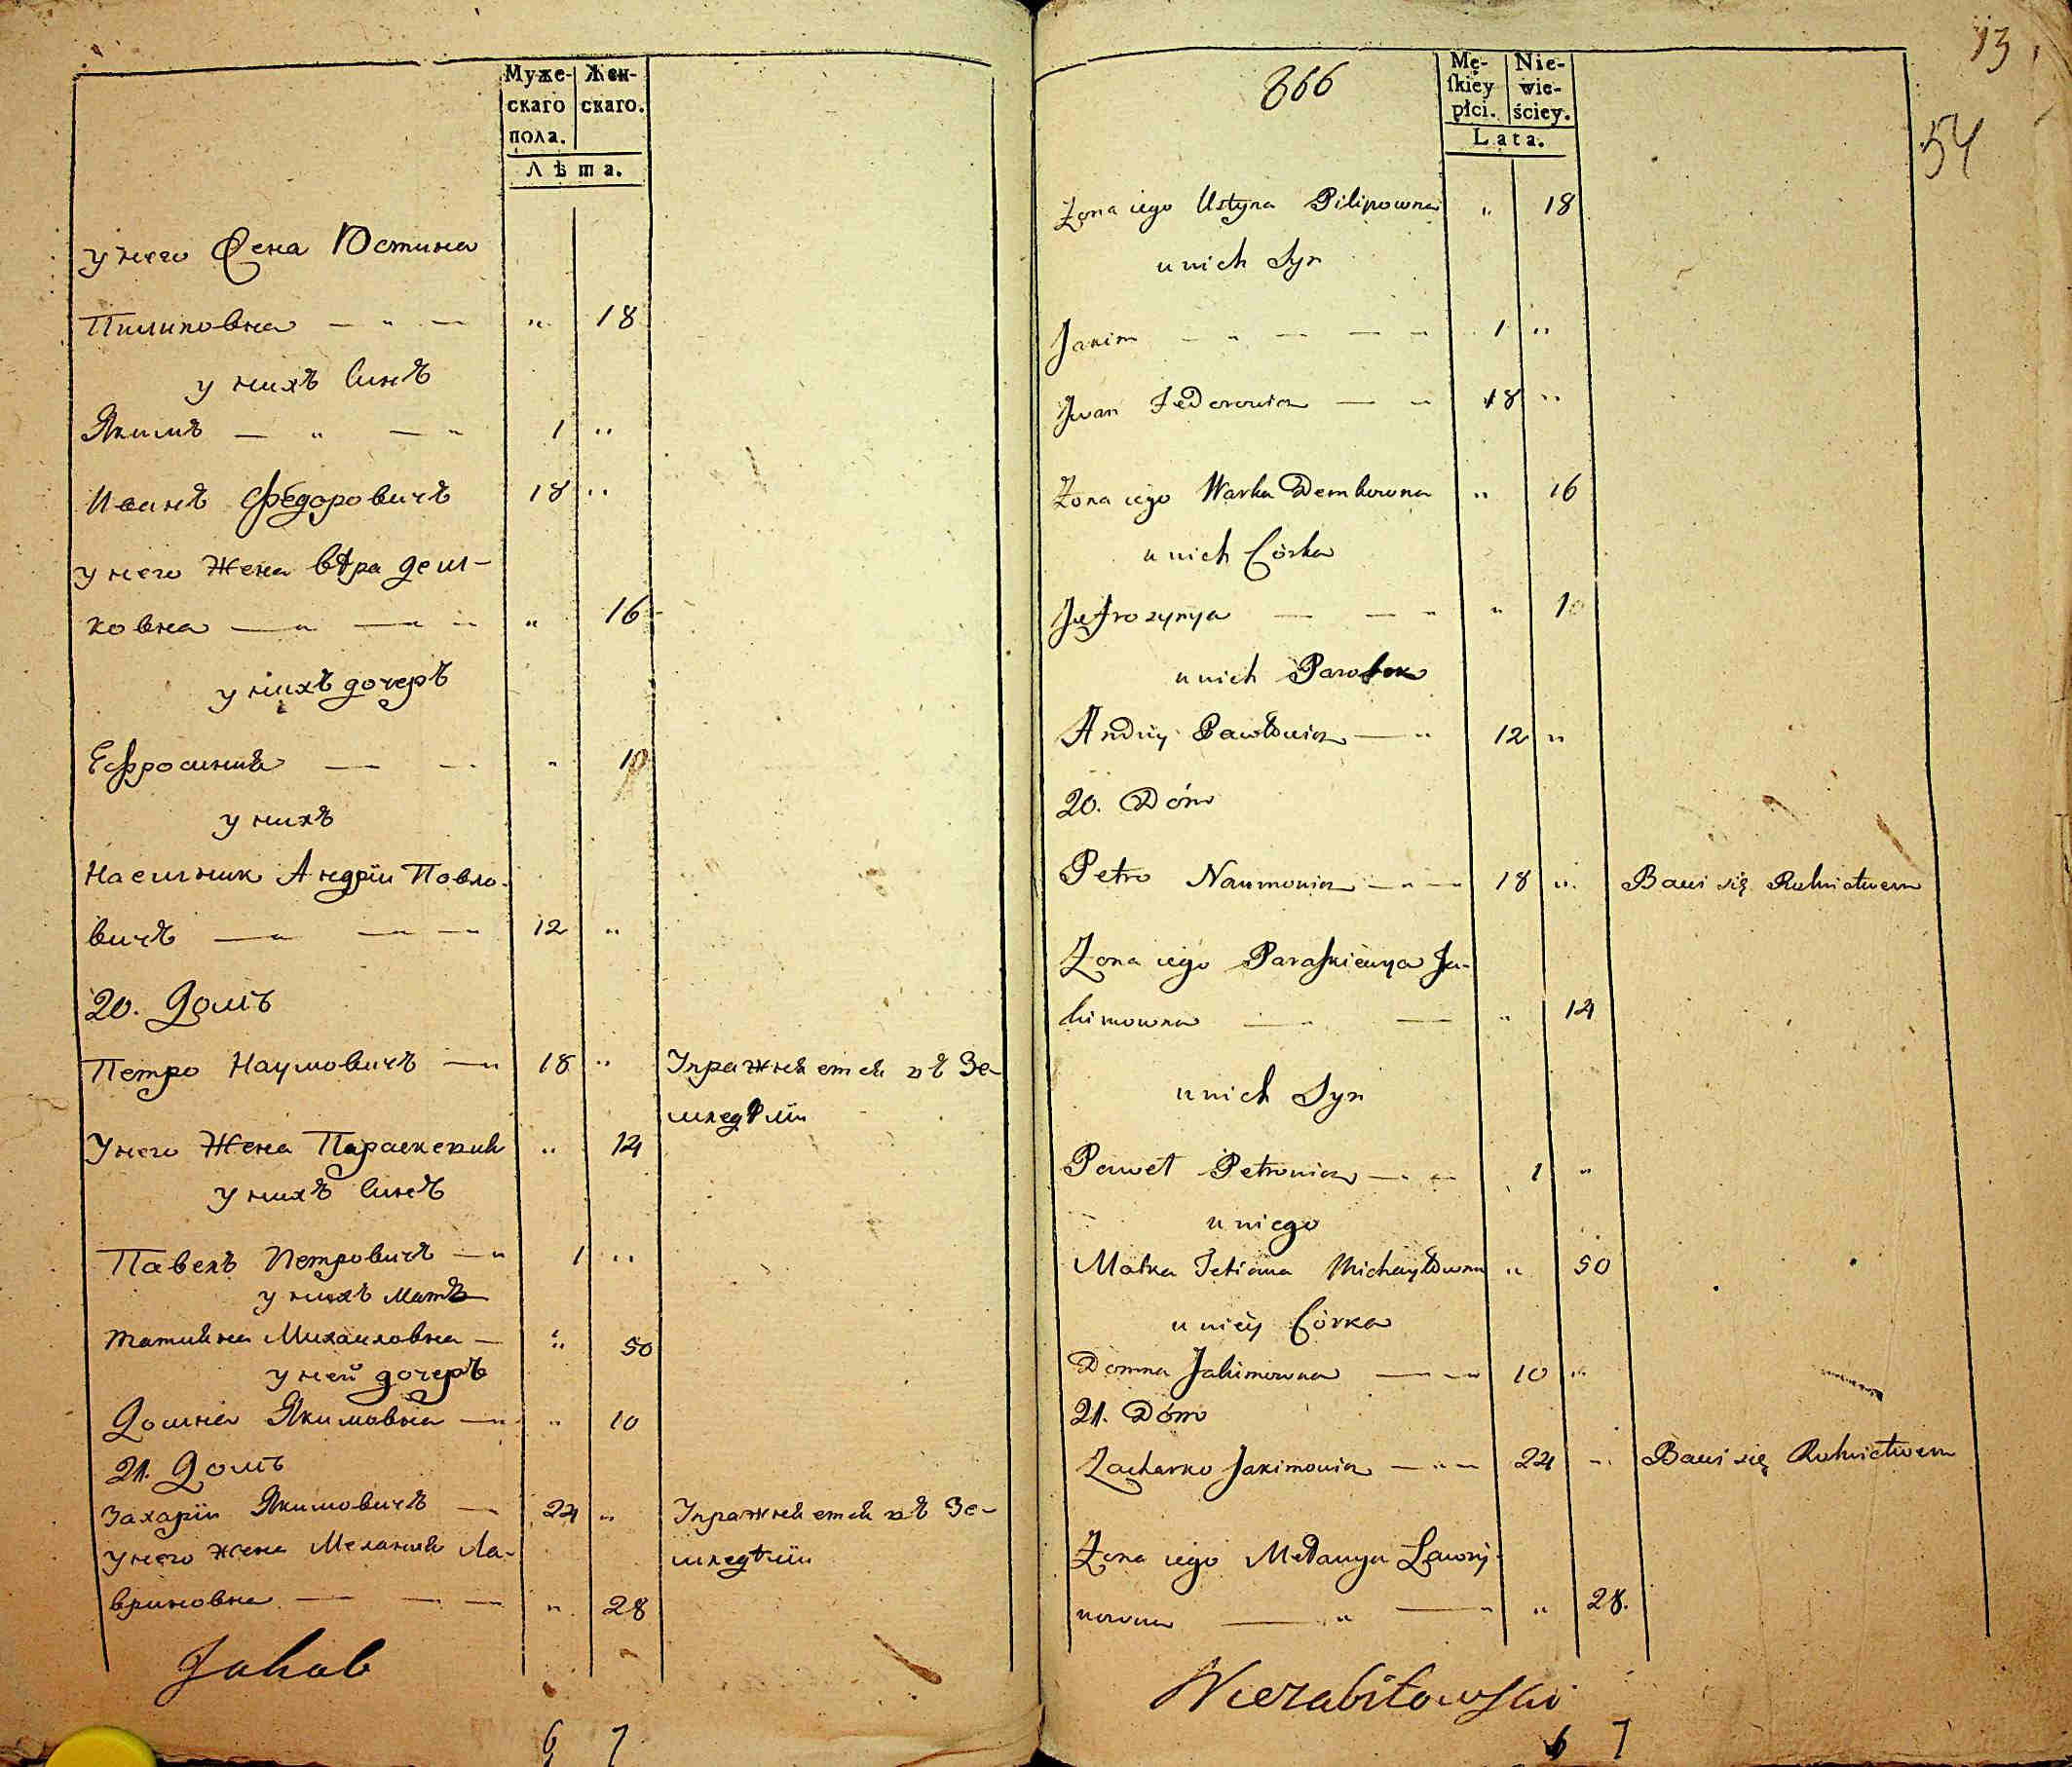 Муже-
скаго
пола.
Жен-
скаго.
Лѣта.
у него Жена Юстина
Пилиповна — „ — „ 18
у нихъ Синъ
Якимъ — „ — „ 1 „
Иванъ Федоровичъ 18 „
у него Жена вѣра дем-
ковна — „ — „ „ 16
у нихъ дочеръ
Ефросиния — — „ 10
у нихъ
Наемник АндрїиПовло-
вичъ — „ — „ 12 „
20. Домъ
Петро Наумовичъ — „ 18 „ Упражняется въ Зе-
мледѣлїи
У него Жена Параскевия „ 14
у нихъ Синъ
Павелъ Петровичъ — „ 1 „
у нихъ Матъ
татияна Михаиловна — „ 50
у ней дочеръ
Домна Якимовна — „ „ 10
21. Домъ
Захарїи Якимовичъ — 24 „ Упражняется въ Зе-
у него жена Мелания Ла- мледѣлїи
вриновна — — „ 28
Jakub
6 7
13
54
866
Mę-
ſkiey
płci.
Nie-
wie-
ściey.
Lata.
Zona iego Ustyna Pilipowna „ 18
u nich Syn
Jakim — „ — — „ 1 „
Jwan Fedorowicz — „ 18 „
Zona iego Warka Demkowna „ 16
u nich Córka
Jefrozynya — — „ „ 10
u nich Parobok
Andriy Pawłowicz — „ 12 „
20. Dóm
Petro Naumowicz — „ — 18 „ Bawi się Rolnictwem
Zona iego Paraskiewya Ja-
kimowna — „ — „ 14
u nich Syn
Paweł Petrowicz — „ 1 „
u niego
Matka Tetiana Michayłowna „ 50
u niey Córka
Domna Jakimowna — „ 10 „
21. Dóm
Zacharko Jakimowicz — „ — 24 „ Bawi się Rolnictwem
Zona iego Mełanya Ławry-
nowna — „ — „ „ 28.
Wierzbiłowski
6 7